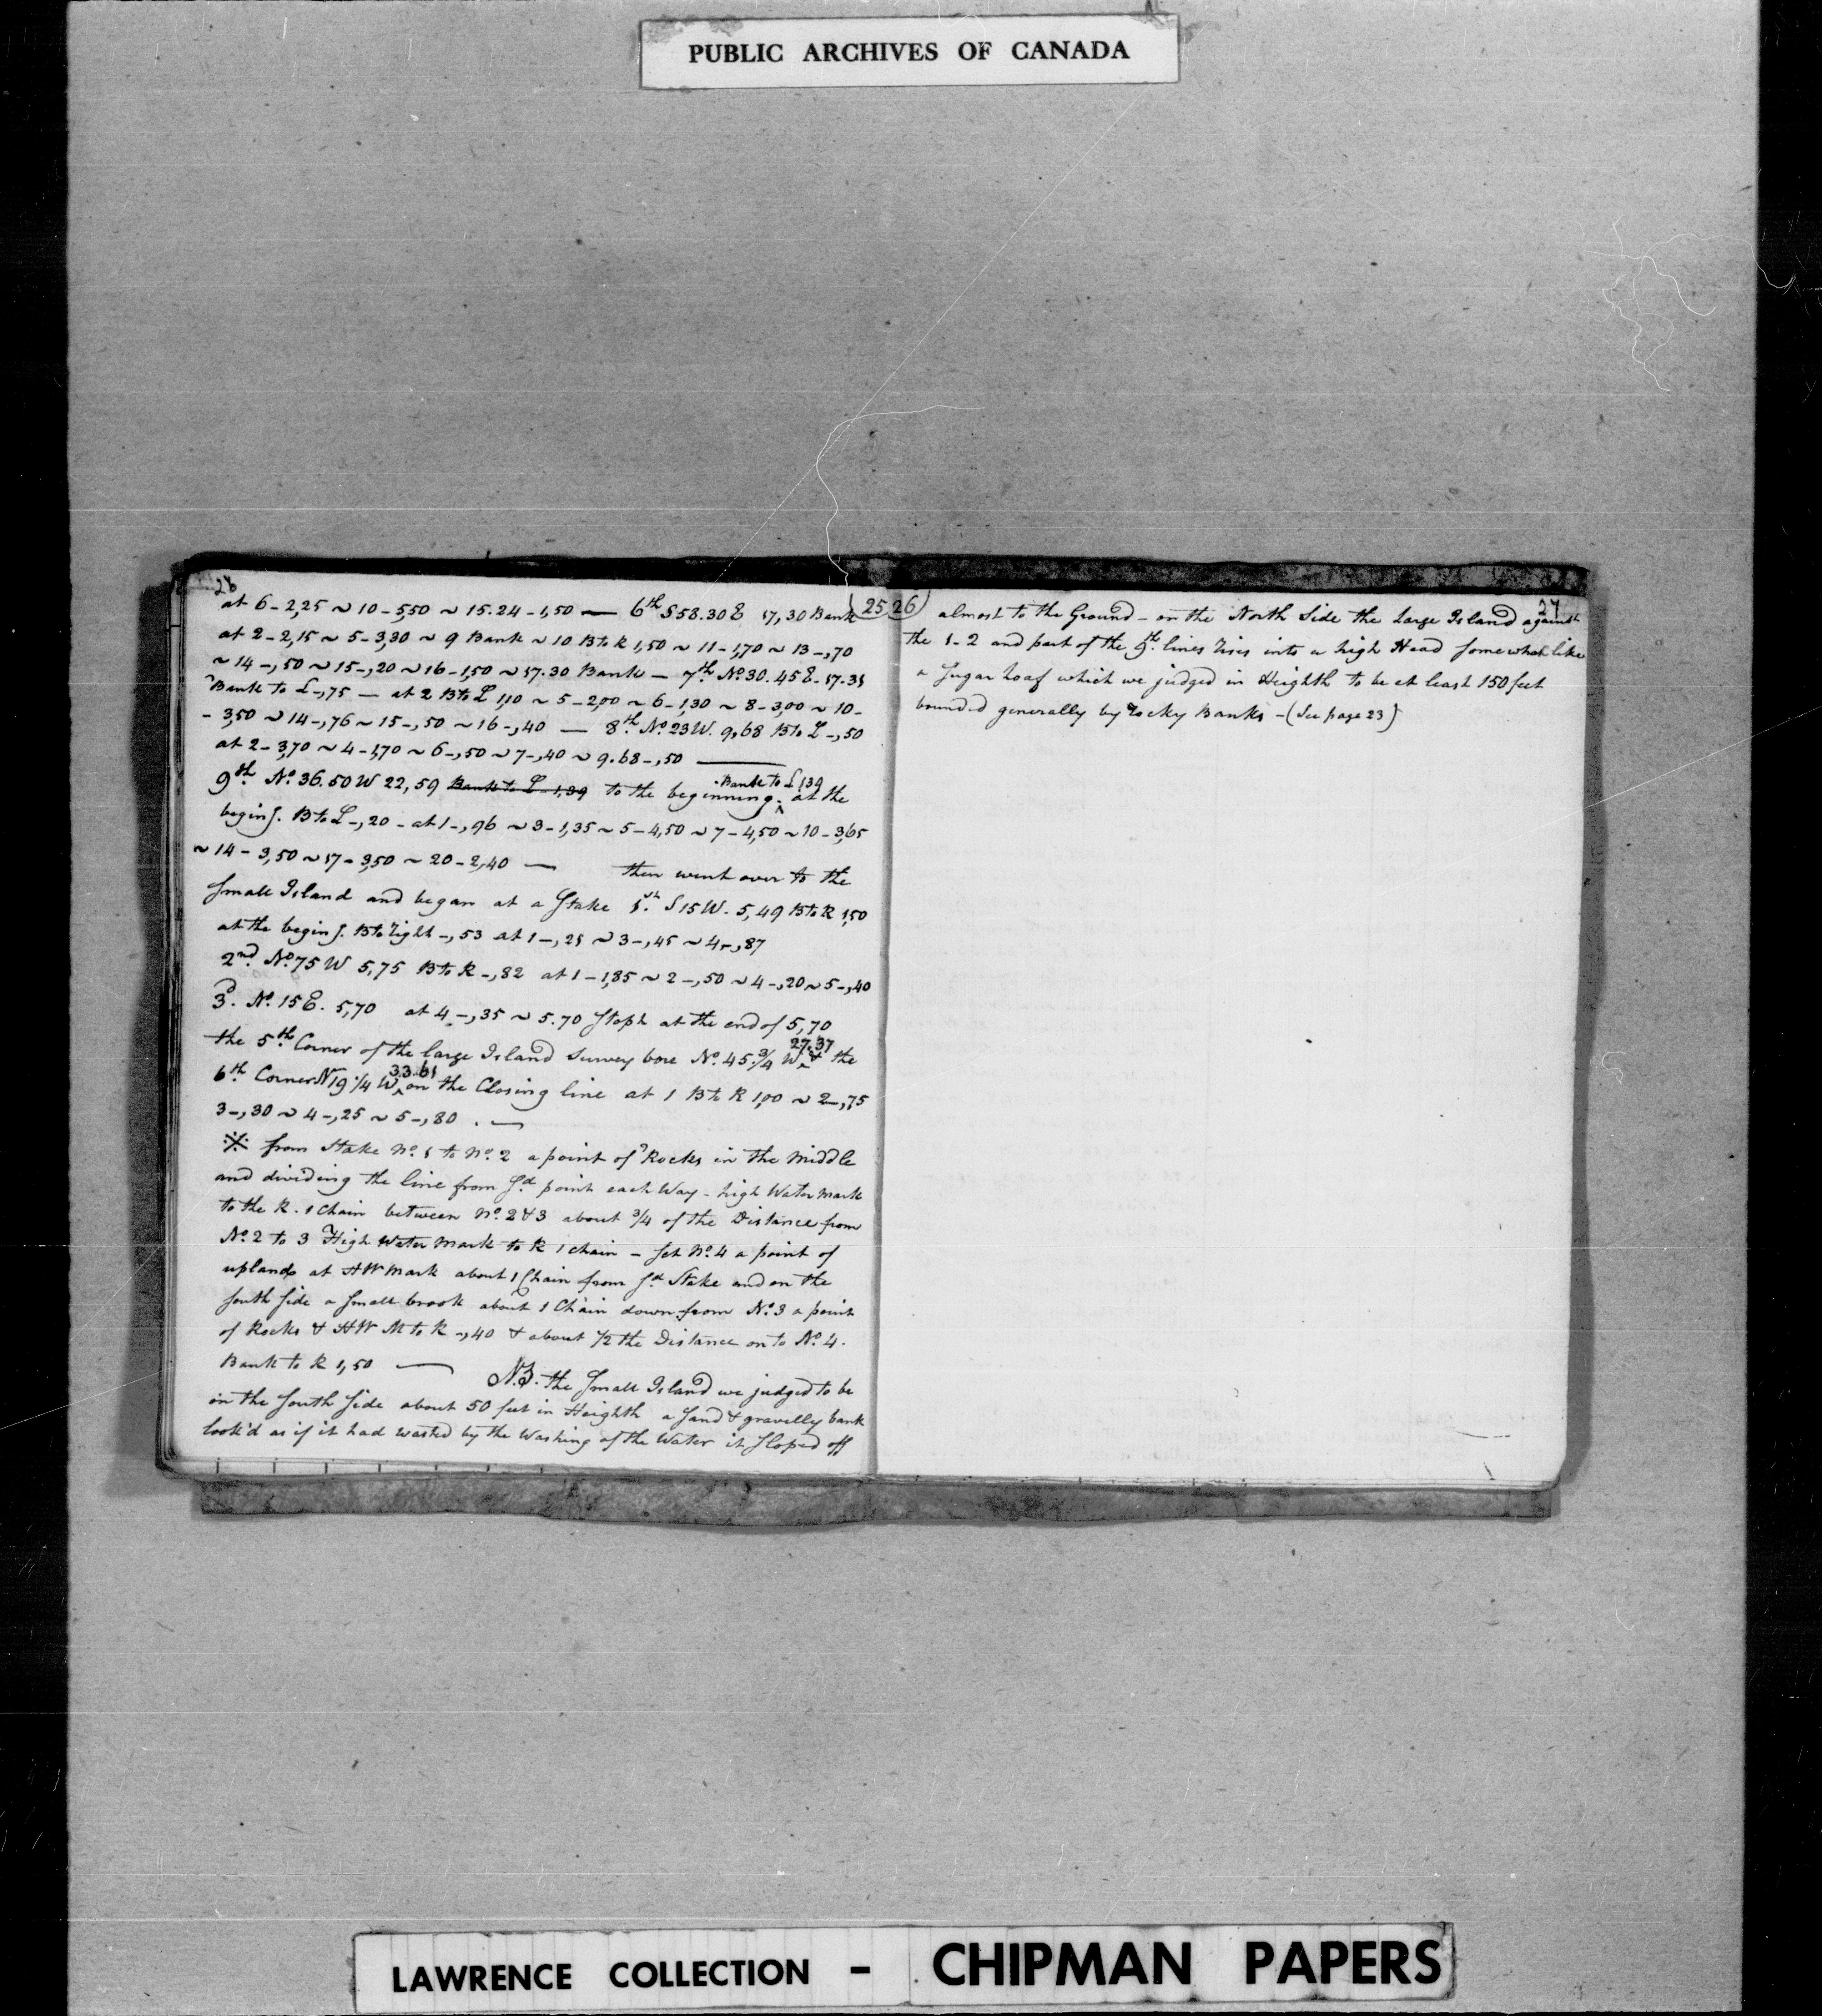 PUBLIC ARCHIVES OF CANADA
26
at 6-2,25 ~ 10-5,50 ~ 15.24-1,50 — 6th S58.30E 17,30 Bank
at 2-2,15 ~ 5-3,30 ~ 9 Bank ~ 10 B to R 1,50 ~ 11-1,70 ~ 13-,70
~ 14-,50 ~ 15-,20 ~ 16-1,50 ~ 17.30 Bank — 7th No. 30.45E-17.31
Bank to L-,75 — at 2 B to L 1,10 ~ 5-2,00 ~ 6-1,30 ~ 8-3,00 ~ 10-
-3,50 ~ 14-,76 ~ 15-,50 ~ 16-,40 — 8th No. 23W. 9,68 B to L-,50
at 2-3,70 ~ 4-1,70 ~ 6-,50 ~ 7-,40 ~ 9.68-,50 —
9th No. 36.50W 22,59 Bank to L-1,39 to the beginning. Bank to L 1,39 at the
begin g. B to L-,20 - at 1-,96 ~ 3-1,35 ~ 5-4,50 ~ 7-4,50 ~ 10-3,65
~ 14-3,50 ~ 17-3,50 ~ 20-2,40 — then went over to the
Small Island and began at a Stake 1st S15W. 5,49 B to R 1,50
at the begin g. B to right-,53 at 1-,21 ~ 3-,45 ~ 4-,87
2nd No. 75W 5,75 B to R-,82 at 1-1,85 ~ 2-,50 ~ 4-,20 ~ 5-,40
3d. No. 15E. 5,70 at 4-,35 ~ 5.70 Stopt at the end of 5,70
the 5th Corner of the large Island Survey bore No. 45 3/4 W 27.37 & the
6th Corner N19 1/4 W 33.61 on the Closing line at 1 B to R 1,00 ~ 2-,75
3-,30 ~ 4-,25 ~ 5-,80. —
※ from Stake No. 1 to No. 2 a point of Rocks in the Middle
and dividing the line from Sd point each Way - high Water mark
to the R. 1 Chain between No. 2 & 3 about 3/4 of the Distance from
No. 2 to 3 High Water Mark to R 1 chain - Set No. 4 a point of
upland at HW Mark about 1 Chain from Sd Stake and on the
South Side a Small brook about 1 Chain down from No. 3 a point
of Rocks & HW M to R-,40 & about 1/2 the Distance on to No. 4.
Bank to R 1,50 — N.B. the Small Island we judged to be
in the South Side about 50 feet in Heighth a Sand & gravelly bank
look'd as if it had wasted by the Washing of the Water it Sloped off
25 26
27
almost to the Ground - on the North Side the Large Island against
the 1-2 and part of the 9th lines rises into a high Head Somewhat like
a Sugar Loaf which we judged in Heighth to be at least 150 feet
bounded generally by rocky Banks - (See page 23)
LAWRENCE COLLECTION - CHIPMAN PAPERS